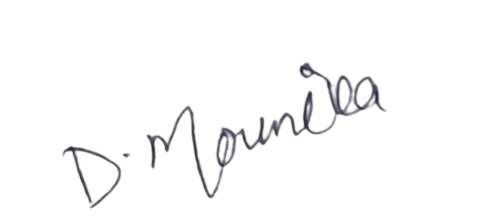 D. Mounika